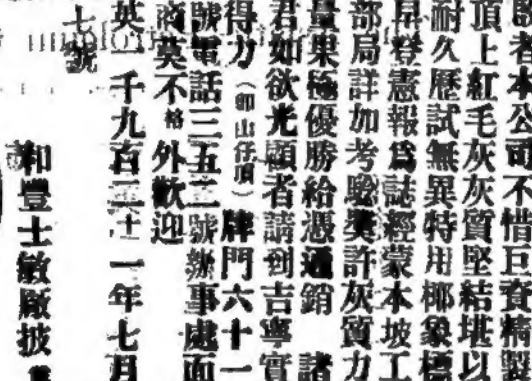 啟者本公司不惜巨資精製
頂上紅毛灰灰質堅結堪以
耐久歷試無異特用椰象標
早登憲報爲誌經蒙本坡工
部局詳加考驗奬許灰質力
量果極優勝給憑通銷 諸
君如欲光顧者請到吉寧實
得力（卽山仔頂）牌門六十一
號電話三五二號辦事處面
商莫不格外歡迎
英一千九百二十一年七月
七號
和豐士敏廠披